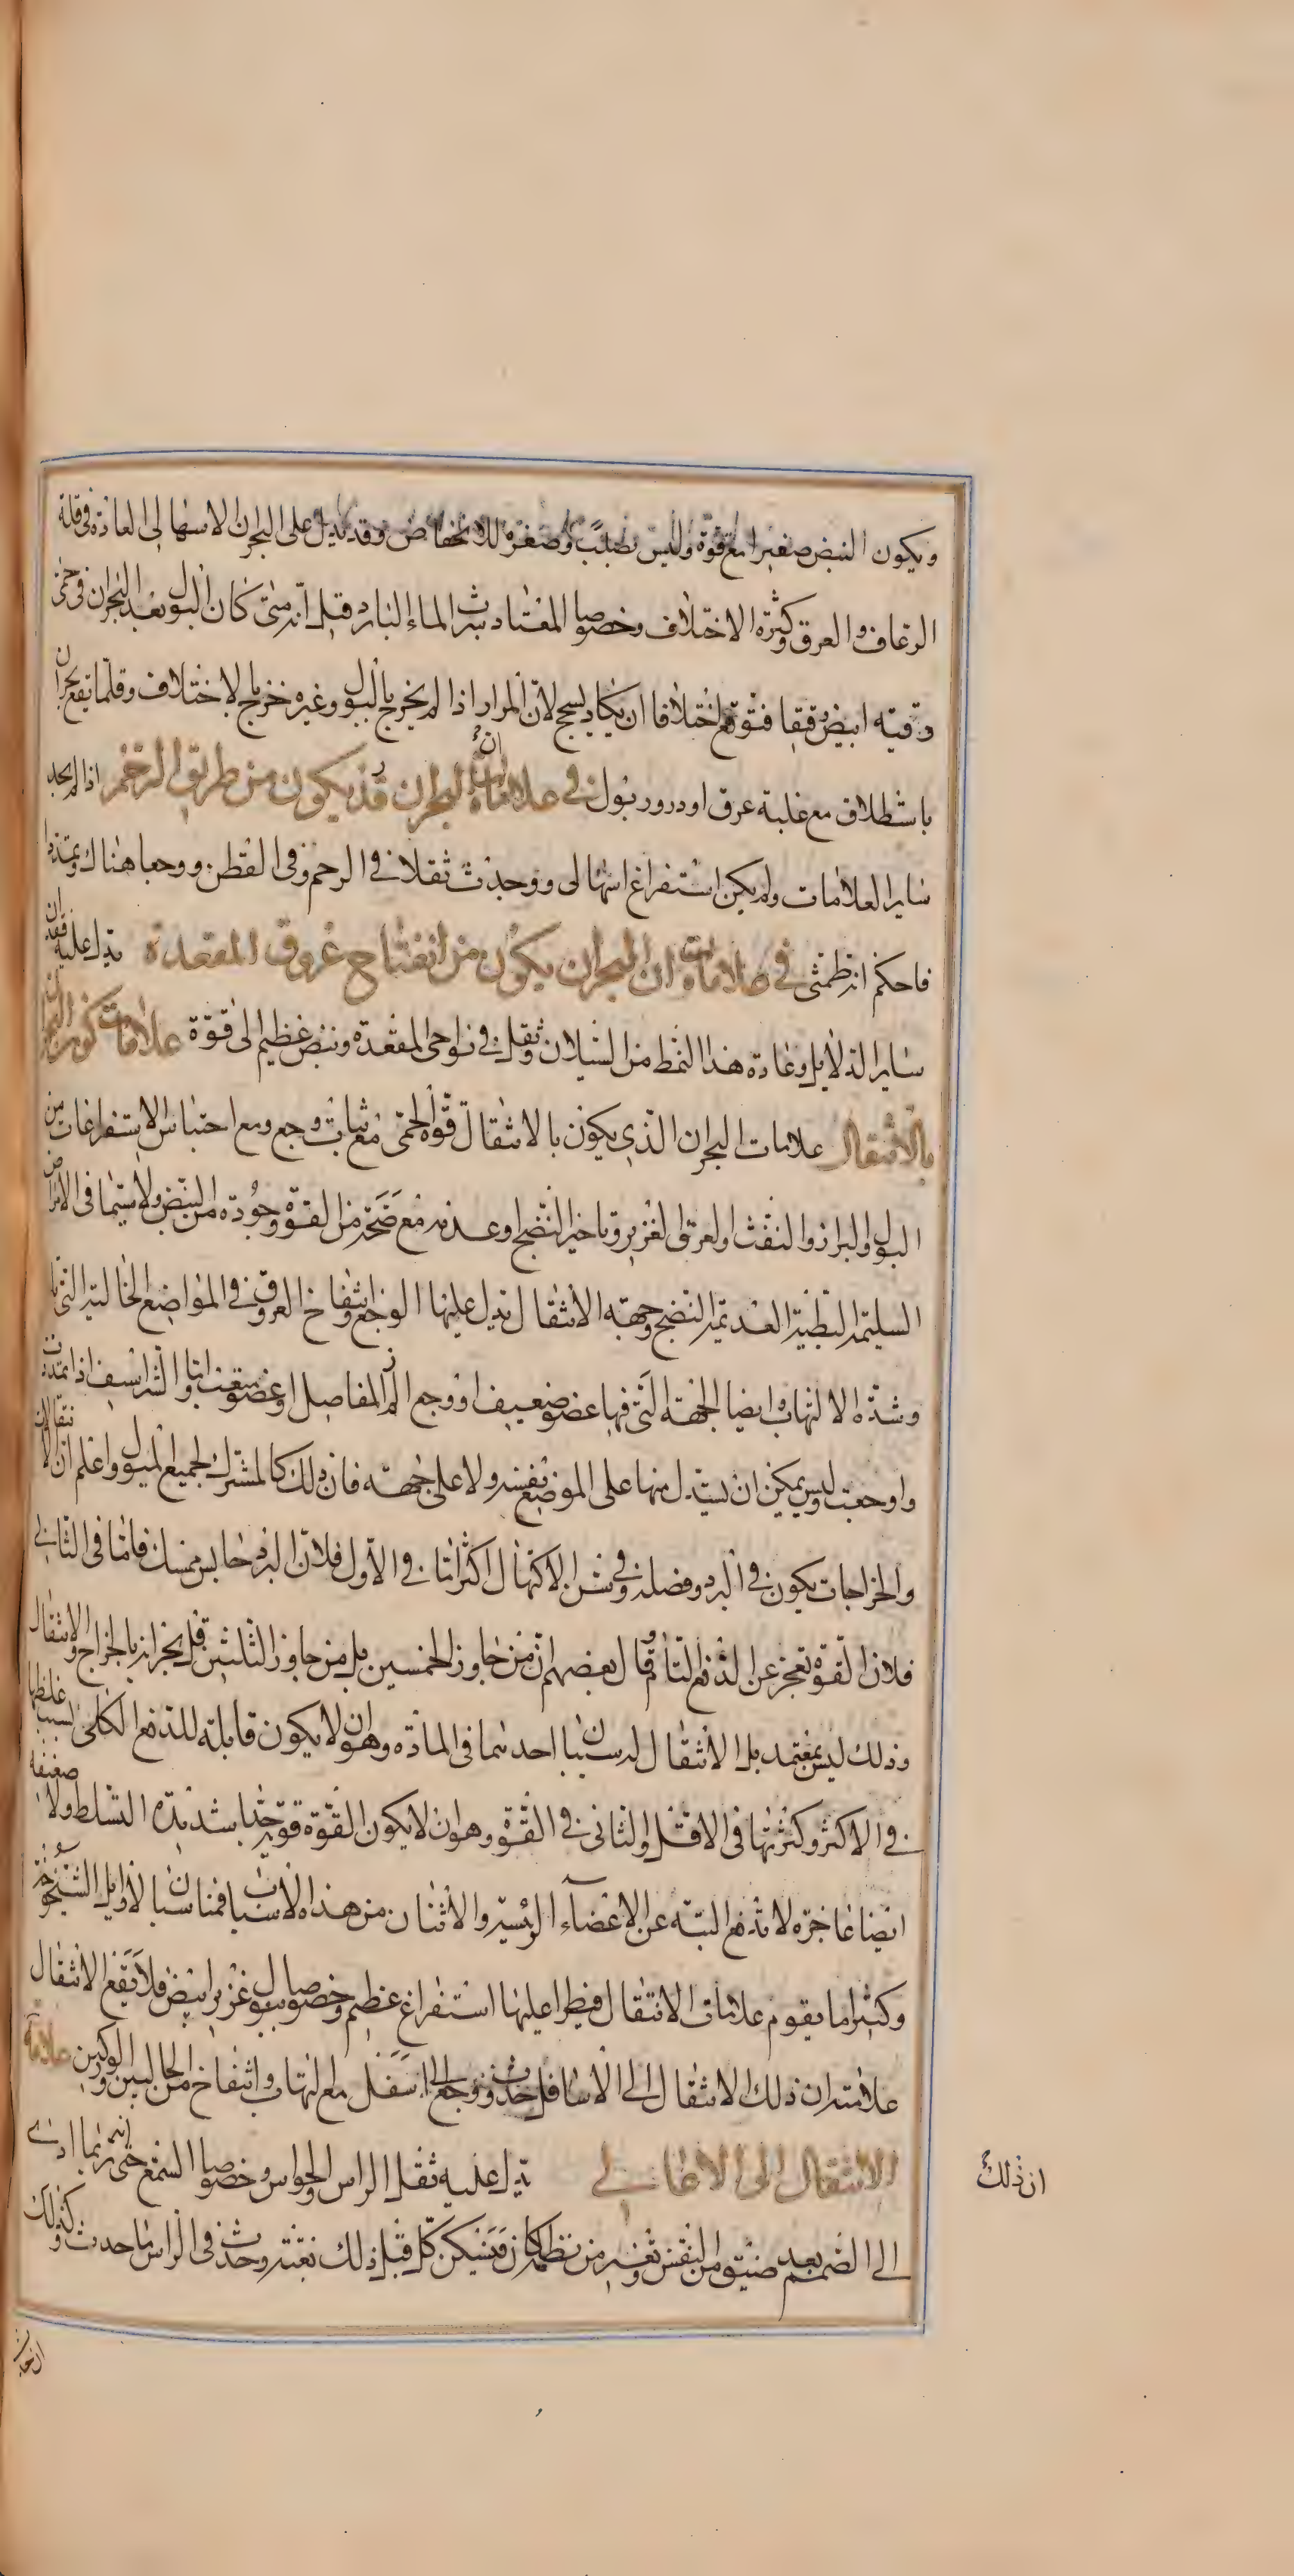 ويكون النبض صغيرا مع قوة وليس بصلب وصغره للانخفاض وقد يدل على البحران الاسهالى العادة فى قلة
الرعاف والعرق وكثرة الاختلاف وخصوصا المعتاد شرب الماء البارد قيل انه متى كان البول بعد البحران فى حمى
وقيه ابيض رقيقا فتوقع اختلافا ان يكاد يسحج لان المرار اذا لم يخرج بالبول وغيره خرج بالاختلاف وقلما يقع بحران
باستطلاق مع غلبة عرق او درور بول فى علامات ان البحران قد يكون من طريق الرحم اذا لم يجد
ساير العلامات ولم يكن استفراغ اسهالى ووجدت ثقلا فى الرحم وفى القطن ووجعا هناك وتمددا
فاحكم انه طمثى فى علامات ان البحران يكون من انفتاح عروق المقعدة يدل عليه فقدان
ساير الدلايل وعادة هذا النمط من السيلان وثقل فى نواحى المقعدة ونبض عظيم الى قوة علامات كون البحران
بالانتقال علامات البحران الذى يكون بالانتقال قوة الحمى مع ثبات وجع ومع احتباس الاستفراغات من
البول والبراز والنفث والعرق الغزير وتاخير النضج او عدمه مع صحة من القوة وجودة من النبض ولا سيما فى الامراض
السليمة البطيئة العديمة النضج وجهة الانتقال يدل عليها الوجع وانتفاخ العروق فى المواضع الخالية التى
وشدة الالتهاب وايضا الجهة التى فيها عضو ضعيف او وجع المفاصل او عضو متعب والشراسيف اذا تمددت
واوجعت وليس يمكن ان يستدل منها على الموضع نفسه ولا على جهته فان ذلك كالمشترك لجميع الميول واعلم ان الانتقالات
والخراجات يكون فى البرد وفصله وفى سن الاكتهال اكثر اما فى الاول فلان البرد حابس ممسك فاما فى الثانى
فلان القوة تعجز عن الدفع التام وقال بعضهم ان من جاوز الخمسين بل من جاوز الثلثين قل بحرانه بالخراج والانتقال
وذلك ليس بمعتمد بل الانتقال له سببان احدهما فى المادة وهو ان لا يكون قابلة للدفع الكلى بسبب غلظها
فى الاكثر وكثرتها فى الاقل والثانى فى القوة وهو ان لا يكون القوة قوية جدا شديدة التسلط ولا ضعيفة
ايضا عاجزة لا تدفع البتة عن الاعضاء الرئيسة والاثنان من هذه الاسباب مناسبان لاوايل الشيخوخة
وكثيرا ما يقوم علامات الانتقال فيطرا عليها استفراغ عظيم وخصوصا بول غزير ابيض فلا يقع الانتقال
علامته ان ذلك الانتقال الى الاسافل حدث وجع الى اسفل مع التهاب وانتفاخ من الحالبين والوركين علامة
الانتقال الى الاعالى يدل عليه ثقل الراس والحواس وخصوصا السمع حتى انه ربما ادى
الى الصمم بعد ضيق من النفس وتغير من نظمه كان فيسكن كل قبل ذلك بغتة وحدث فى الراس ما حدث وكذلك
ان ذلك